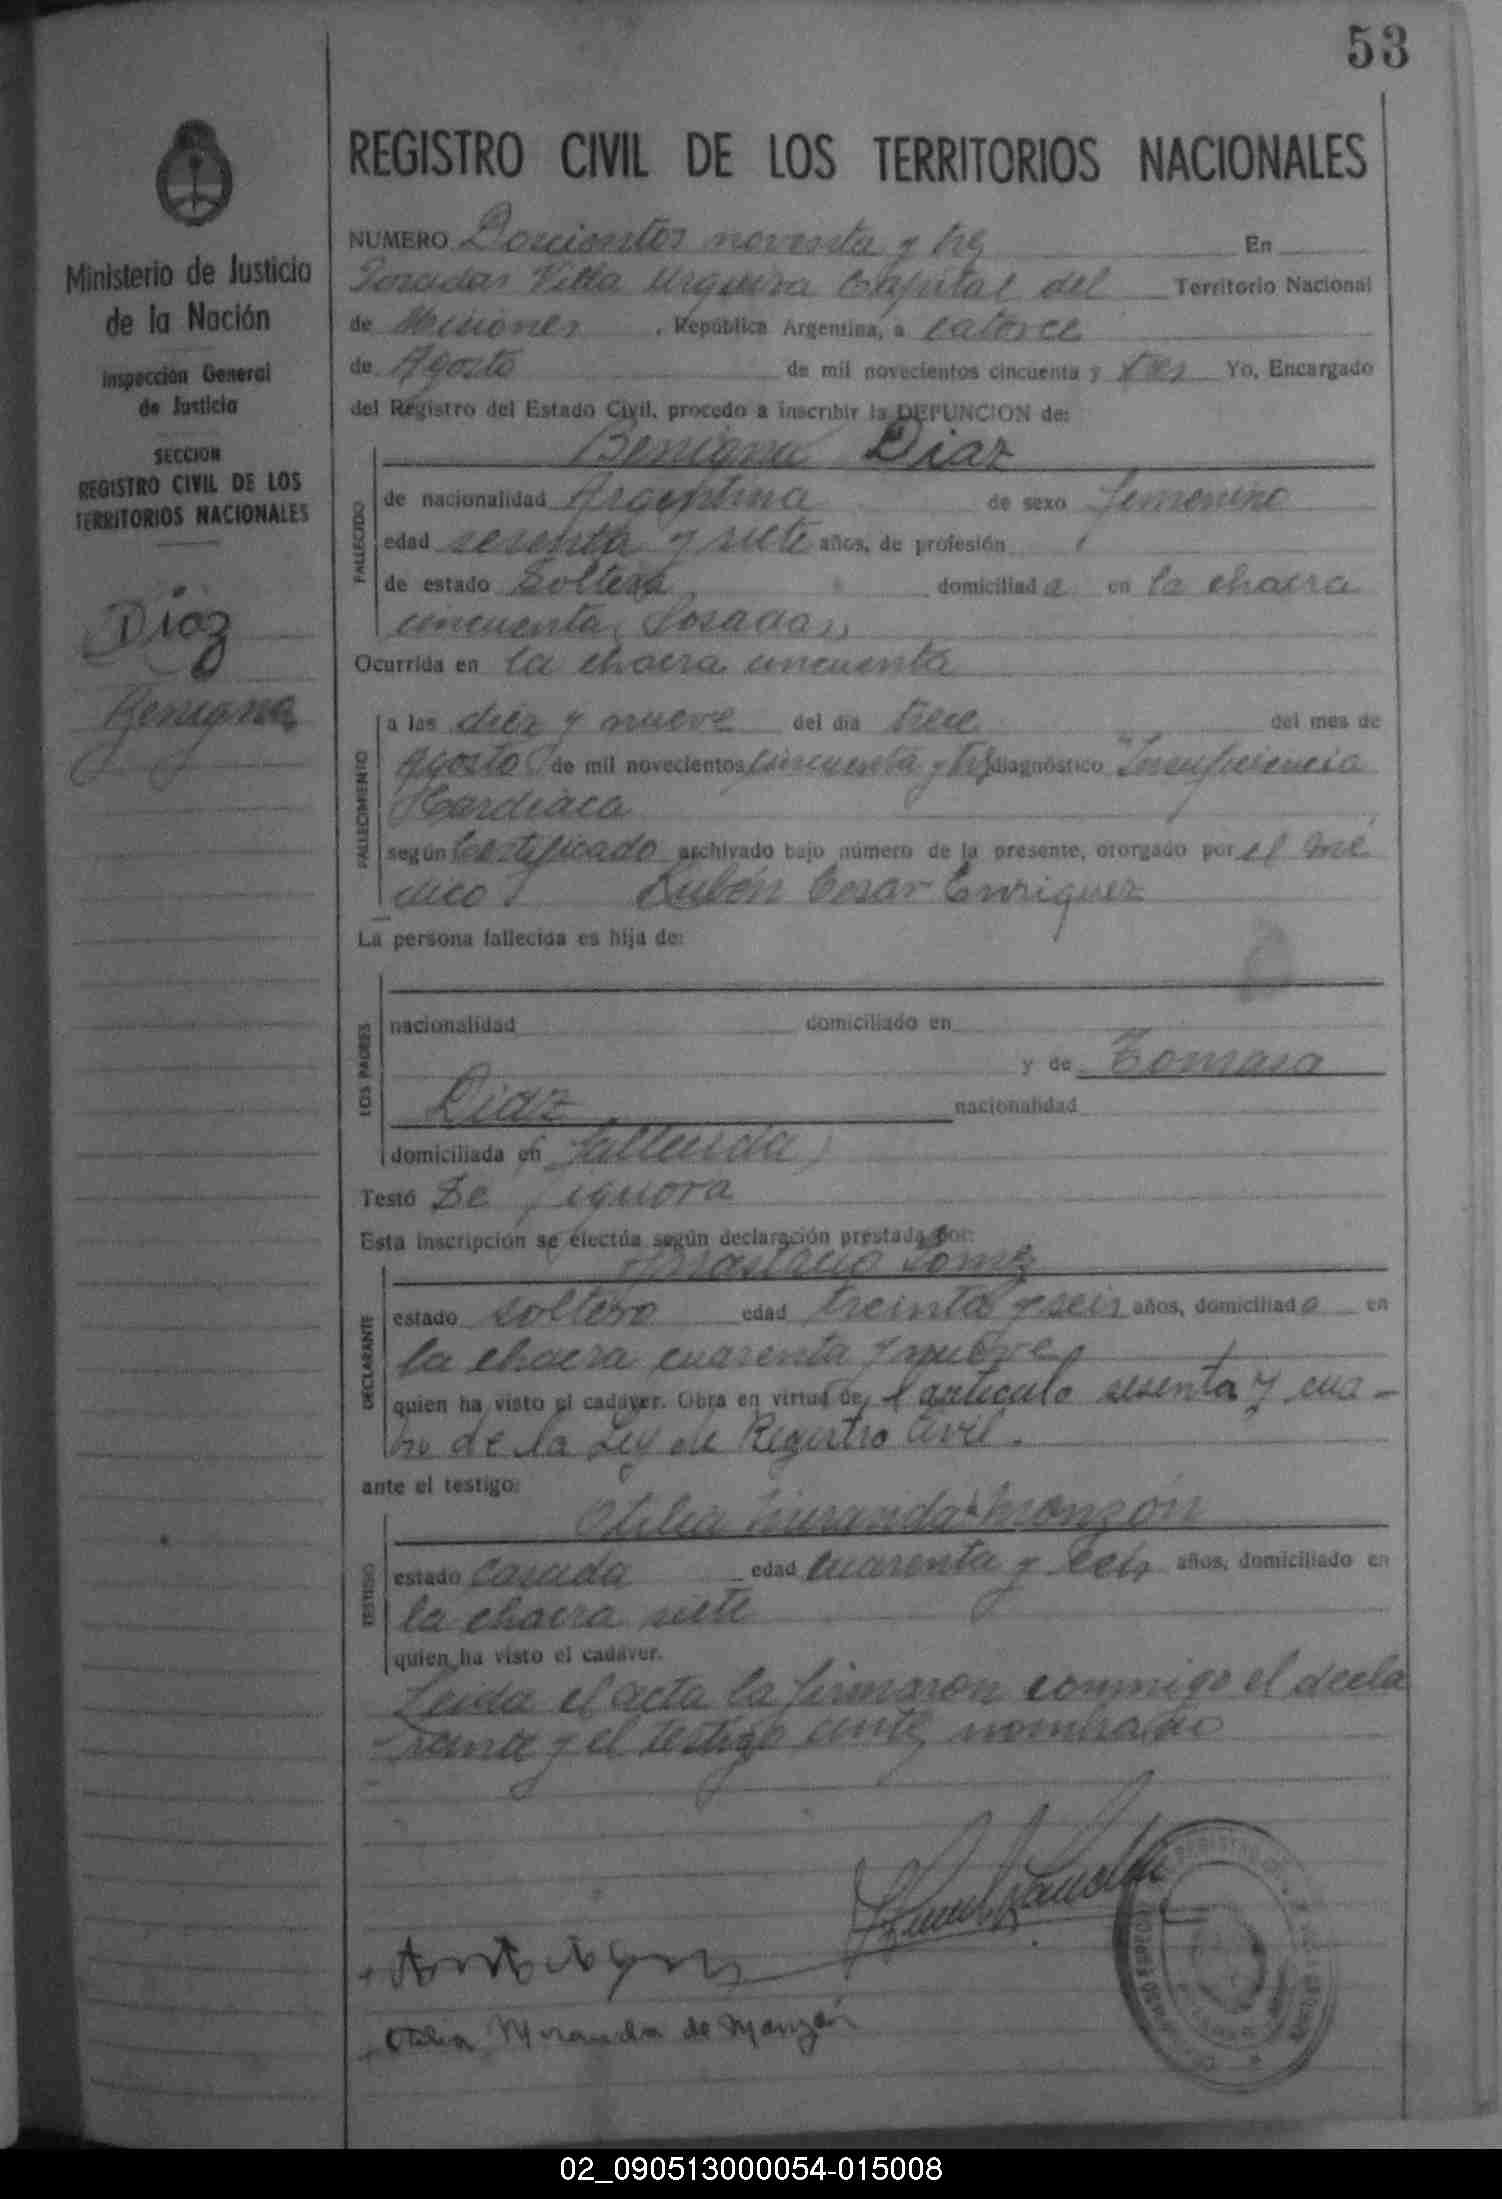 53
REGISTRO CIVIL DE LOS TERRITORIOS NACIONALES
Ministerio de Justicia
de la Nación
Inspección General
de Justicia
SECCION
REGISTRO CIVIL DE LOS
TERRITORIOS NACIONALES
Díaz
Benigna
NUMERO Doscientos noventa y tres En
Posadas Villa Urquiza Capital del Territorio Nacional
de Misiones, República Argentina, a catorce
de Agosto de mil novecientos cincuenta y tres Yo, Encargado
del Registro del Estado Civil, procedo a inscribir la DEFUNCION de:
Benigna Diaz
FALLECIDO
de nacionalidad Argentina de sexo femenino
edad sesenta y siete años, de profesión
de estado Soltera domiciliada en la chacra
cincuenta, Posadas
Ocurrida en la chacra cincuenta
FALLECIMIENTO
a las diez y nueve del día trece del mes de
Agosto de mil novecientos cincuenta y tres diagnóstico "Insuficiencia
Cardiaca
según Certificado archivado bajo número de la presente, otorgado por el mé
dico Rubén Cesar Enriquez
La persona fallecida es hija de:
LOS PADRES
nacionalidad domiciliado en
y de Tomasa
Diaz nacionalidad
domiciliada en fallecida
Testó Se ignora
Esta inscripción se efectúa según declaración prestada por:
DECLARANTE
estado soltero edad treinta y seis años, domiciliado en
la chacra cuarenta y nueve
quien ha visto el cadáver. Obra en virtud del artículo sesenta y cua-
tro de la Ley de Registro Civil.
ante el testigo:
Otilia Miranda de Monzón
TESTIGO
estado casada edad cuarenta y seis años, domiciliado en
la chacra siete
quien ha visto el cadáver.
Leida el acta la firmaron conmigo el decla
rante y el testigo ante nombrado
Otilia Miranda de Monzón
02_090513000054-015008